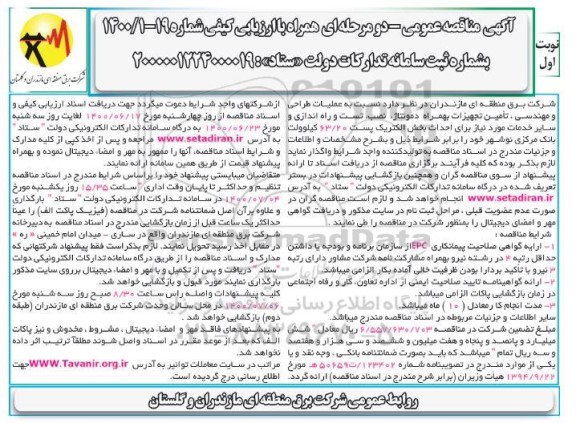 آگهی مناقصه عمومی - دو مرحله ای همراه با ارزیابی کیفی شماره ۱۹-۱۴۰۰/۱
بشماره ثبت سامانه تدارکات دولت «ستاد»: ۲۰۰۰۰۰۱۲۲۴۰۰۰۰۱۹
نوبت
اول
شرکت برق منطقه ای مازندران و گلستان
شرکت برق منطقه ای مازندران در نظر دارد نسبت به عملیات طراحی
و مهندسی ، تامین تجهیزات بهمراه دمونتاژ، نصب تست و راه اندازی و
سایر خدمات مورد نیاز برای احداث بخش الکتریک پست ۶۳/۲۰ کیلوولت
بانک مرکزی نوشهر خود را برابر شرایط ذیل و بشرح مشخصات و اطلاعات
و جزئیات مندرج در اسناد مناقصه به تولیدکننده واجد شرایط واگذار نماید
لازم بذکر بوده که کلیه فرآیند برگزاری مناقصه از دریافت اسناد تا ارائه
پیشنهاد از سوی مناقصه گران و همچنین بازگشایی پیشنهادات در بستر
تعریف شده در درگاه سامانه تدارکات الکترونیکی دولت " ستاد " به آدرس
www.setadiran.ir انجام خواهد شد و لازم است مناقصه گران در
صورت عدم عضویت قبلی ، مراحل ثبت نام در سایت مذکور و دریافت گواهی
مهر و امضای دیجیتال را بمنظور شرکت در مناقصه را طی نمایند .
شرایط مناقصه :
۱- ارایه گواهی صلاحیت پیمانکاری EPC از سازمان برنامه و بودجه با داشتن
حداقل رتبه ۴ در رشته نیرو بهمراه مشارکت نامه شرکت مشاور دارای رتبه
۳ نیرو با تاکید بردارا بودن ظرفیت خالی آماده بکار الزامی میباشد.
۲- ارائه گواهینامه تایید صلاحیت ایمنی از اداره تعاون، کار و رفاه اجتماعی
در زمان بازگشایی پاکات الزامی میباشد.
۳- مدت انجام کار معادل ( ۱۰ ) ماه میباشد.
سایر اطلاعات و جزئیات مربوطه در اسناد مناقصه مندرج میباشد.
مبلغ تضمین شرکت در مناقصه ۶/۵۵۷/۶۳۰/۷۰۳ ریال معادل ( شش
میلیارد و پانصد و پنجاه و هفت میلیون و ششصد و سی هزار و هفتصد
و سه ریال تمام ) میباشد که باید بصورت ضمانتنامه بانکی ، وجه نقد و یا
یکی از موارد مندرج در تصویبنامه شماره ۱۲۳۴۰۲/ت۵۰۶۵۹هـ مورخ
۱۳۹۴/۹/۲۲ هیأت وزیران (برابر شرح مندرج در اسناد مناقصه) ارائه گردد.
از شرکتهای واجد شرایط دعوت میگردد جهت دریافت اسناد ارزیابی کیفی و
اسناد مناقصه از روز چهارشنبه مورخ ۱۴۰۰/۰۶/۱۷ لغایت روز سه شنبه
مورخ ۱۴۰۰/۰۶/۲۳ به درگاه سامانه تدارکات الکترونیکی دولت " ستاد "
به آدرس www.setadiran.ir مراجعه و پس از اخذ کپی از کلیه مدارک
و شرایط اسناد مناقصه، آنها را ممهور به مهر و امضا، دیجیتال نموده و بهمراه
پیشنهاد قیمت از طریق همین سامانه ارائه نمایند.
متقاضیان میبایستی پیشنهاد خود را بر اساس شرایط مندرج در اسناد مناقصه
تنظیم و حداکثر تا پایان وقت اداری "ساعت ۱۵/۳۵" روز یکشنبه مورخ
۱۴۰۰/۰۷/۰۴ در سامانه تدارکات الکترونیکی دولت " ستاد " بارگذاری
و علاوه بر آن اصل ضمانتنامه شرکت در مناقصه (فیزیک پاکت الف) را عینا
حداکثر یک ساعت قبل از زمان بازگشایی مندرج در اسناد مناقصه به دبیرخانه
شرکت برق منطقه ای مازندران واقع در ساری - میدان امام خمینی « ره »
در مقابل اخذ رسید تحویل نمایند. لازم بذکر است فقط پیشنهاد شرکتهائی که
مدارک و اسناد مناقصه را از طریق درگاه سامانه تدارکات الکترونیکی دولت
"ستاد" دریافت و پس از تکمیل و با مهر و امضا، دیجیتال برروی سایت مذکور
بارگذاری نمایند مورد قبول و بازگشایی خواهد شد.
کلیه پیشنهادات واصله راس ساعت ۸/۳۰ صبح روز سه شنبه مورخ
۱۴۰۰/۰۷/۰۶ در محل سالن وحدت شرکت برق منطقه ای مازندران (طبقه
دوم) بازگشایی خواهد شد.
به پیشنهادهای فاقد مهر و امضا، دیجیتال ، مشروط ، مخدوش و نیز پاکات
الف که بعد از موعد مقرر در اسناد واصل شوند مطلقاً ترتیب اثر داده
نخواهد شد.
مراتب در سایت معاملات توانیر به آدرس WWW.Tavanir.org.ir جهت
اطلاع رسانی درج گردیده است.
روابط عمومی شرکت برق منطقه ای مازندران و گلستان